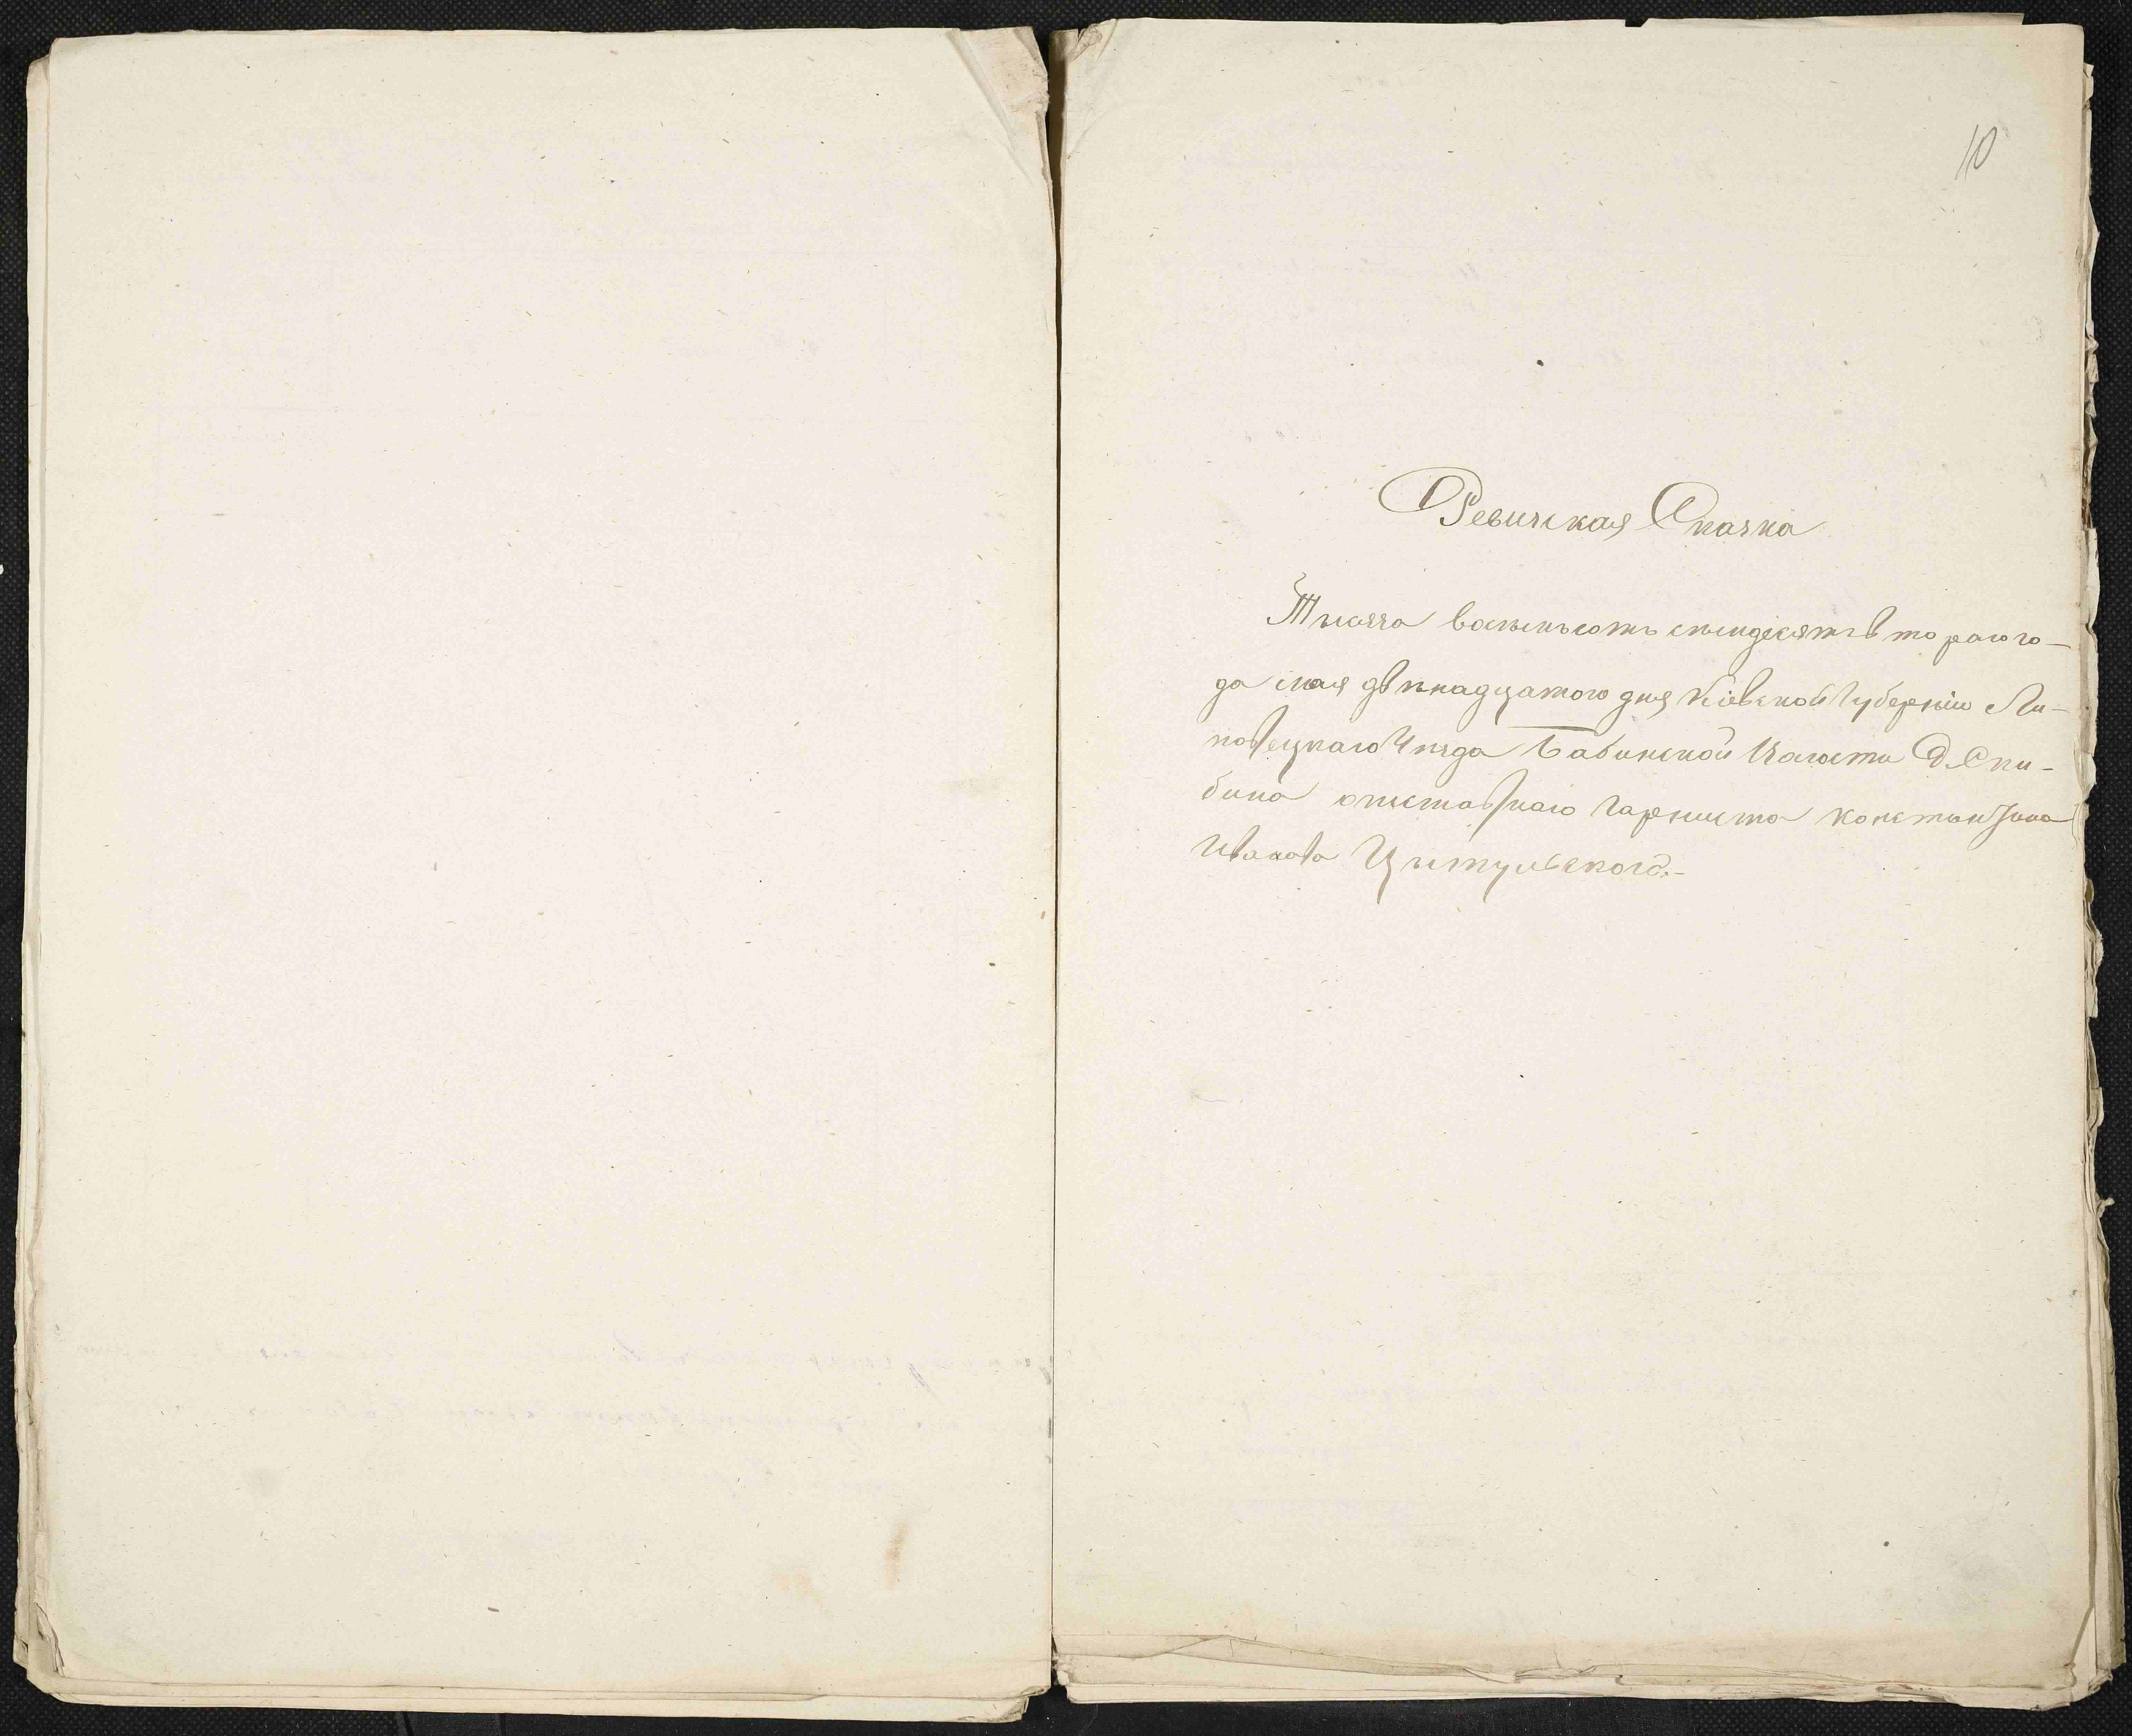 10
Ревизская Сказка
Тысяча восемьсотъ семдесятъ втораго го-
да мая двѣнадцатого дня Кіевской Губерніи Ли-
повецкаго Уѣзда Бабинской Волости Д. Ски-
бина отставнаго Гарниста Константина
Иванова Цытульского.-